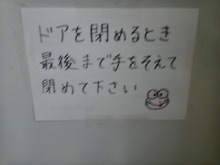 ドアを閉めるとき
最後まで手をそえて
閉めて下さい